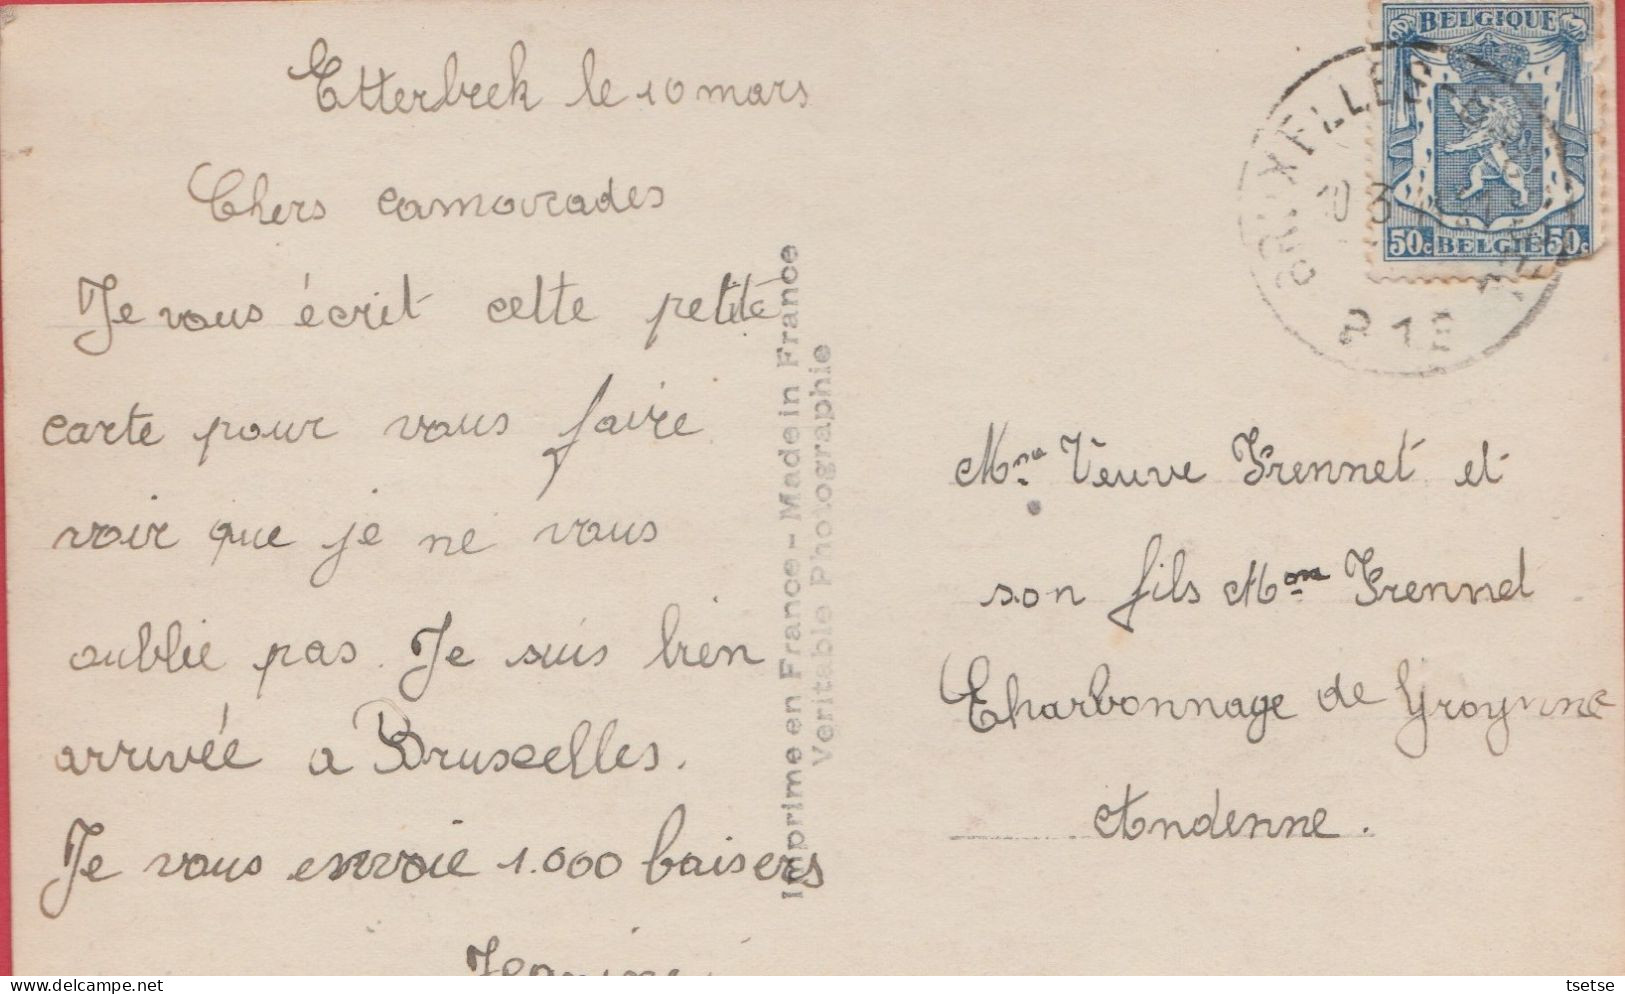 Etterbeek le 10 mars
Chers camarades
Je vous écrit cette petite
carte pour vous faire
voir que je ne vous
oublie pas. Je suis bien
arrivée a Bruxelles.
Je vous envoie 1.000 baisers
Imprime en France - Made in France
Veritable Photographie
BELGIQUE
50c BELGIË 50c
BRUXELLES
10 3
Veuve Frennet et
son fils Frennet
Charbonnage de Groynne
Andenne.
tsetse